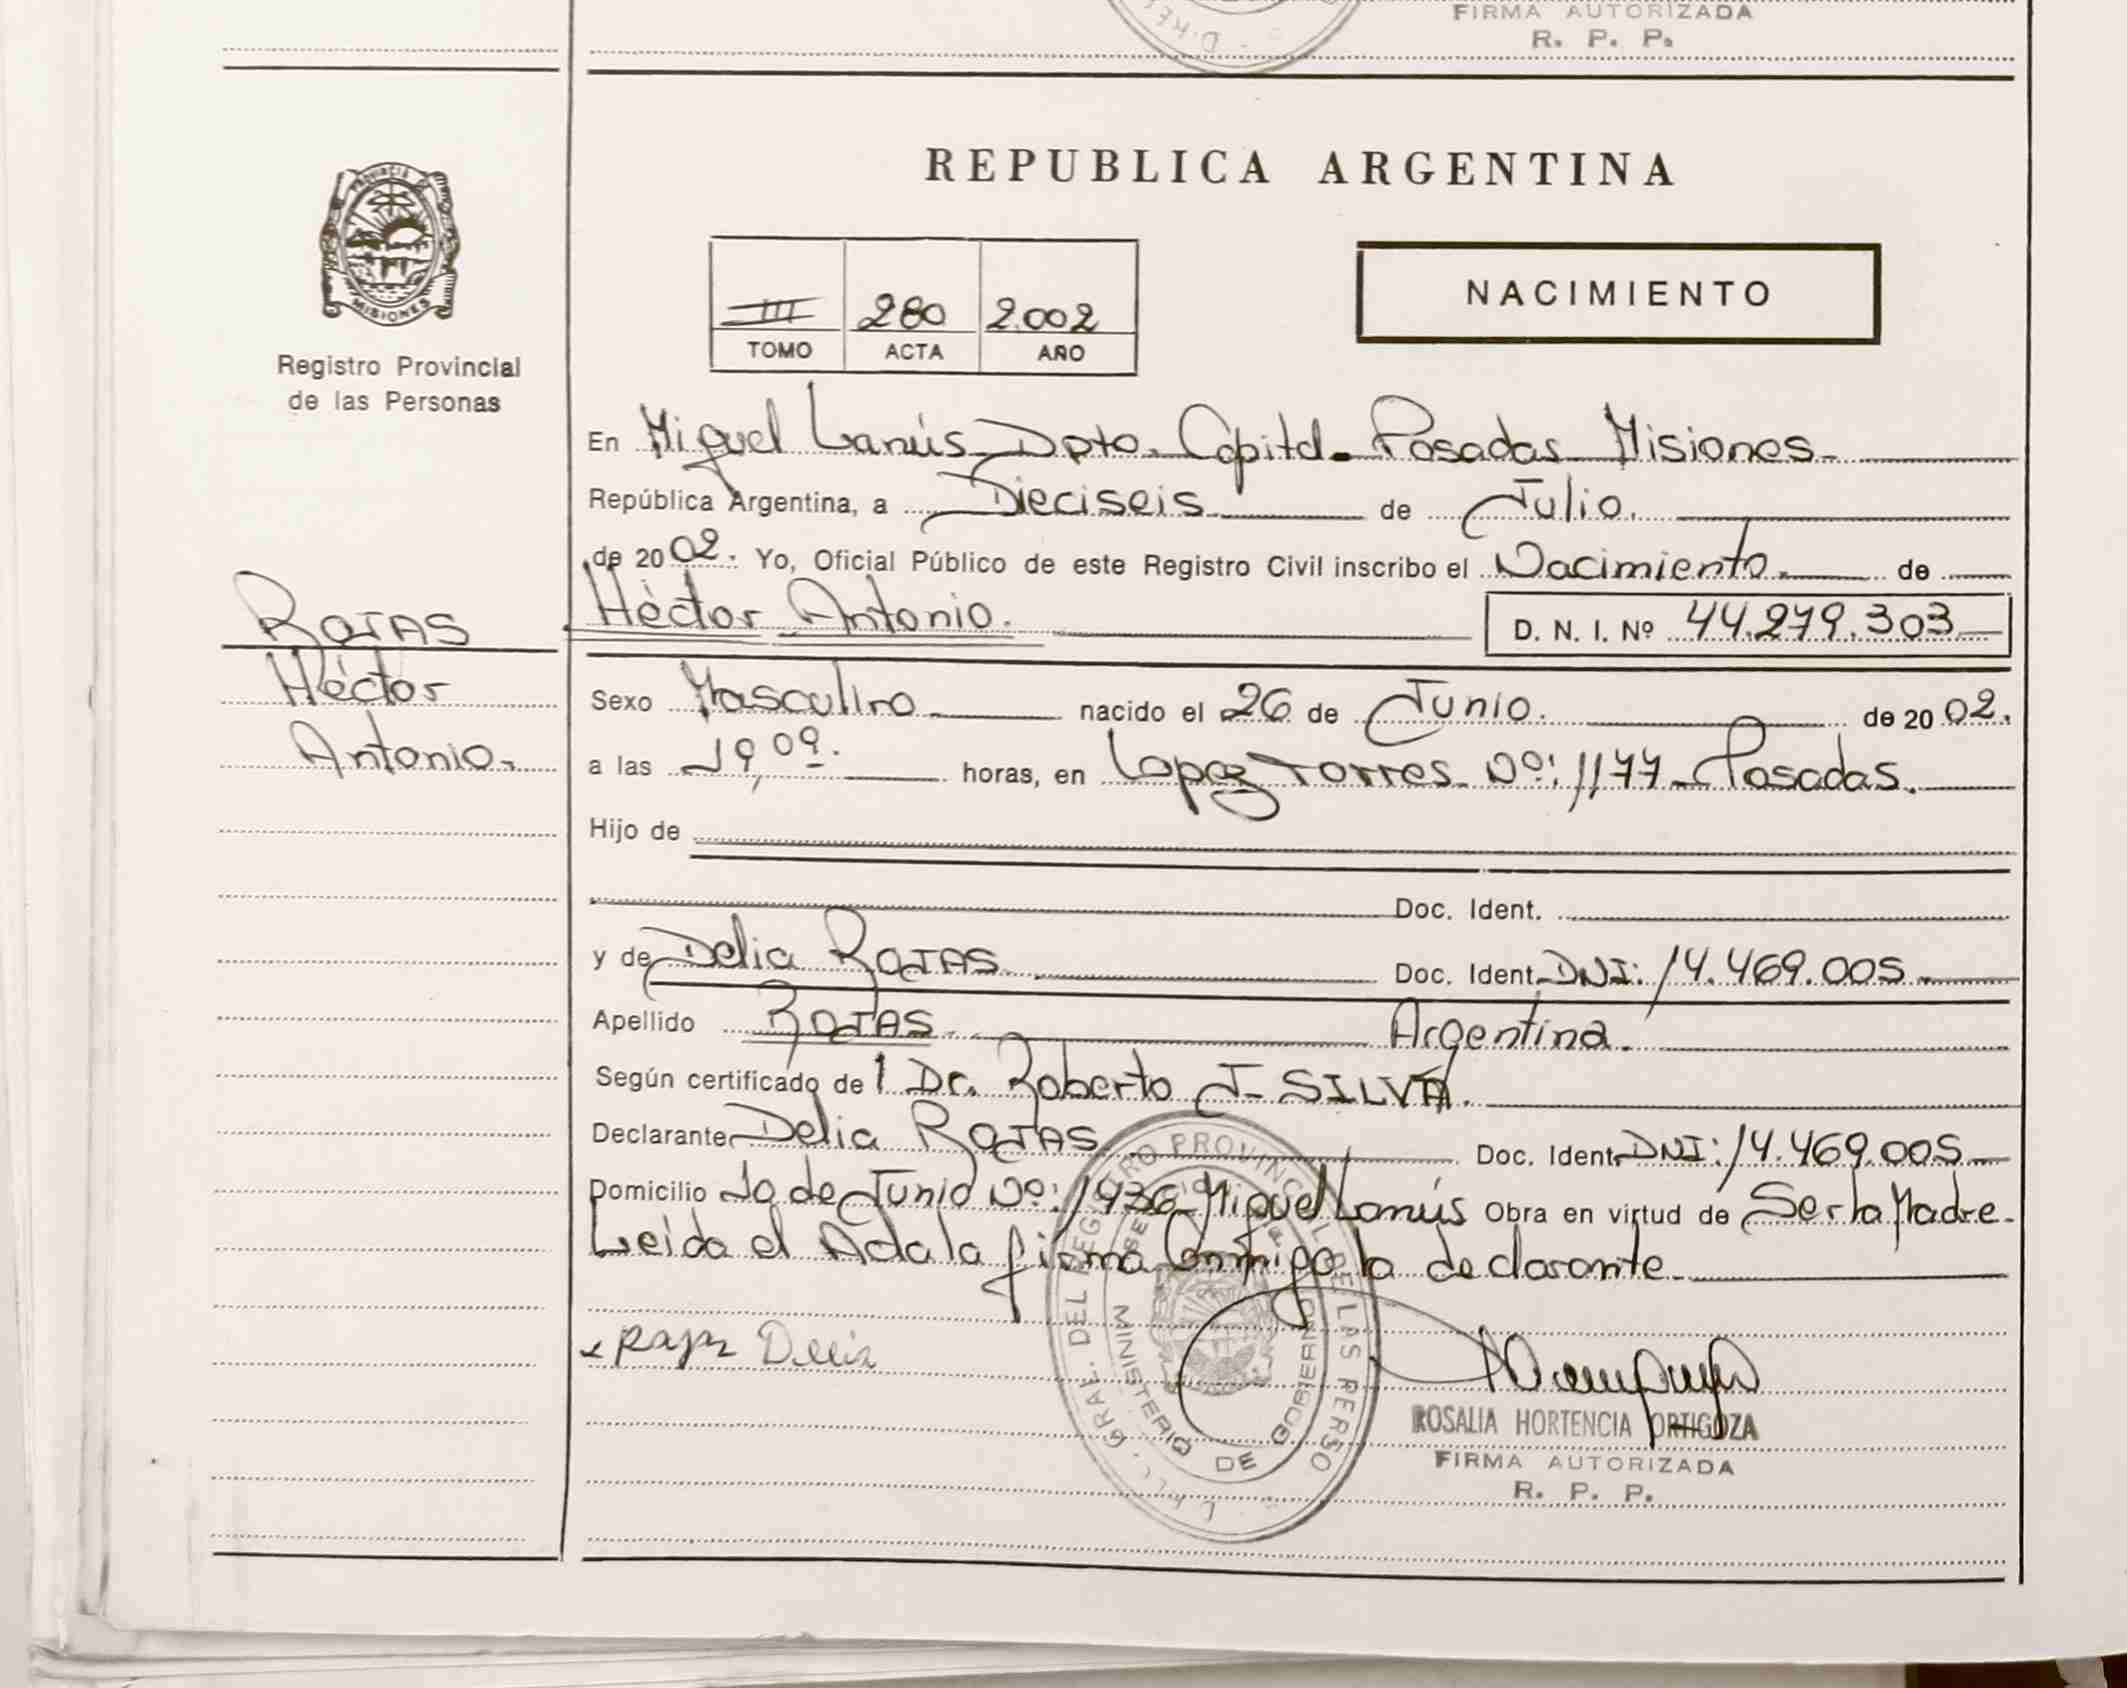 FIRMA AUTORIZADA
R. P. P.
PROVINCIA DE
MISIONES
Registro Provincial
de las Personas
REPUBLICA ARGENTINA
III 280 2.002
TOMO ACTA AÑO
NACIMIENTO
En Miguel Lanús Dpto. Capital - Posadas Misiones
República Argentina, a Dieciseis de Julio.
de 2002. Yo, Oficial Público de este Registro Civil inscribo el Nacimiento de
Héctor Antonio.
D. N. I. Nº 44.279.303
ROJAS
Héctor
Antonio.
Sexo Masculino nacido el 26 de Junio. de 2002.
a las 19,09. horas, en Lopez Torres Nº: 1177 - Posadas.
Hijo de
Doc. Ident.
y de Delia ROJAS Doc. Ident. DNI: 14.469.005
Apellido ROJAS Argentina.
Según certificado de 1 Dr. Roberto J. SILVA.
Declarante Delia ROJAS Doc. Ident. DNI: 14.469.005
Domicilio 10 de Junio Nº: 1936 Miguel Lanús Obra en virtud de Ser la Madre.
Leida el Acta la firma Conmigo la declarante
Delia
REGISTRO PROVINCIAL DE LAS PERSO
MINISTERIO DE GOBIERNO
ROSALIA HORTENCIA ORTIGOZA
FIRMA AUTORIZADA
R. P. P.